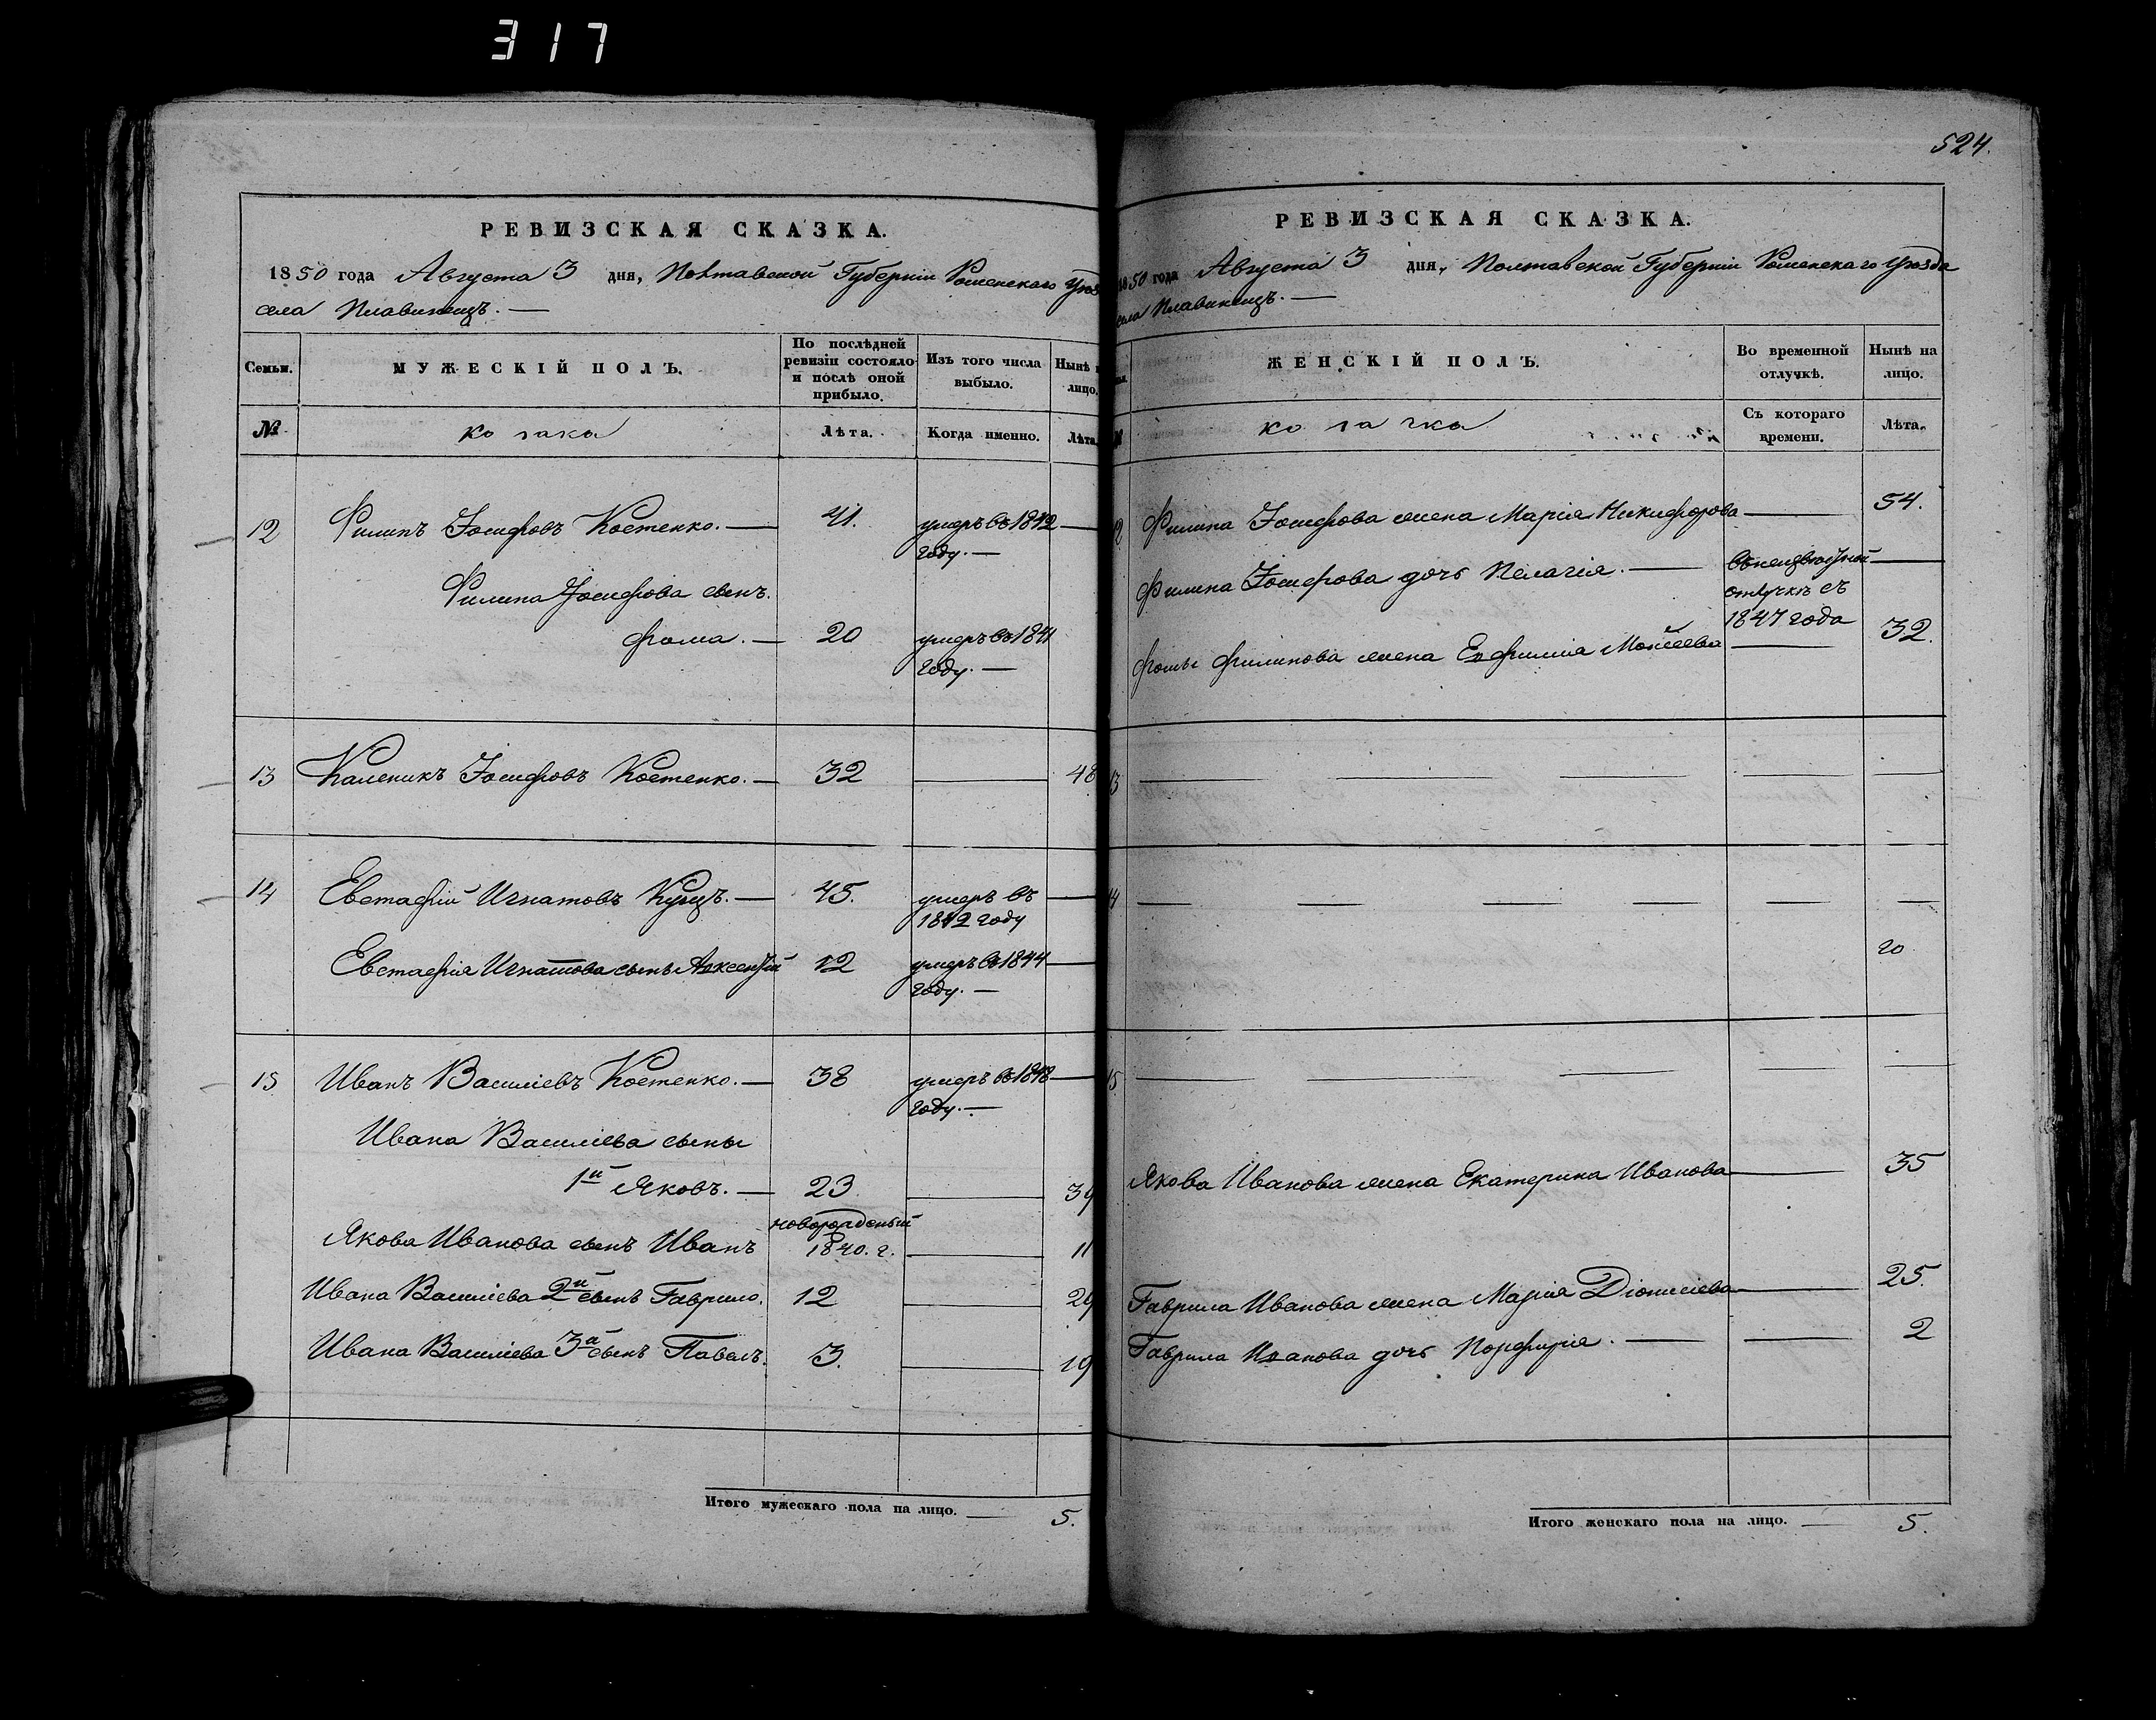 317
РЕВИЗСКАЯ СКАЗКА.
1850 года Августа 3 дня, Полтавской Губерніи Роменскаго Уѣз
села Плавинищъ. —
Семьи.
МУЖЕСКІЙ ПОЛЪ.
По послѣдней ревизіи состояло и послѣ оной прибыло.
Изъ того числа выбыло.
Нынѣ н лицо.
№
козака
Лѣта.
Когда именно.
Лѣта
12 Филипъ Іосифовъ Костенко. — 41. умеръ въ 1842 —
году. —
Филипа Іосифова сынъ
Фома. — 20 умеръ въ 1841
году. —
13 Каленикъ Іосифовъ Костенко. — 32 — 48
14 Евстафій Игнатовъ Кущъ. — 45. умеръ въ —
1842 году
Евстафія Игнатова сынъ Авксентій 12 умеръ въ 1844 —
году. —
15 Иванъ Василіевъ Костенко. — 38 умеръ въ 1848 —
году. —
Ивана Василіева сыны
1й Яковъ. — 23 — 39
новорожденый
Якова Ивановa сынъ Иванъ 1840. г. — 11
Ивана Василіева 2й сынъ Гаврило. 12 — 29
Ивана Василіева 3й сынъ Павелъ. 3. — 19
Итого мужескаго пола на лицо. — 5.
524.
РЕВИЗСКАЯ СКАЗКА.
1850 года Августа 3 дня, Полтавской Губерніи Роменскаго Уѣзда
села Плавинищъ. —
ЖЕНСКІЙ ПОЛЪ.
Во временной отлучкѣ.
Нынѣ на лицо.
козачка
Съ котораго времени.
Лѣта.
12 Филипа Іосифова жена Марія Никифорова — 54.
Филипа Іосифова дочь Пелагія. — въ неизвѣстной —
отлучкѣ съ
1847 года
Фомы Филипова жена Евфимія Мойсеева — 32.
13 — — — — — —
14 — — — — — —
го
15 — — — — — —
Якова Иванова жена Екатерина Иванова — 35
Гаврила Иванова жена Марія Діонисіева — 25.
Гаврила Иванова дочь Порфирія. — — 2
Итого женскаго пола на лицо. — 5.